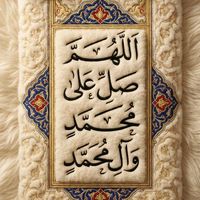 اَللّٰهُمَّ
صَلِّ عَلىٰ
مُحَمَّدٍ
وَآلِ مُحَمَّدٍ